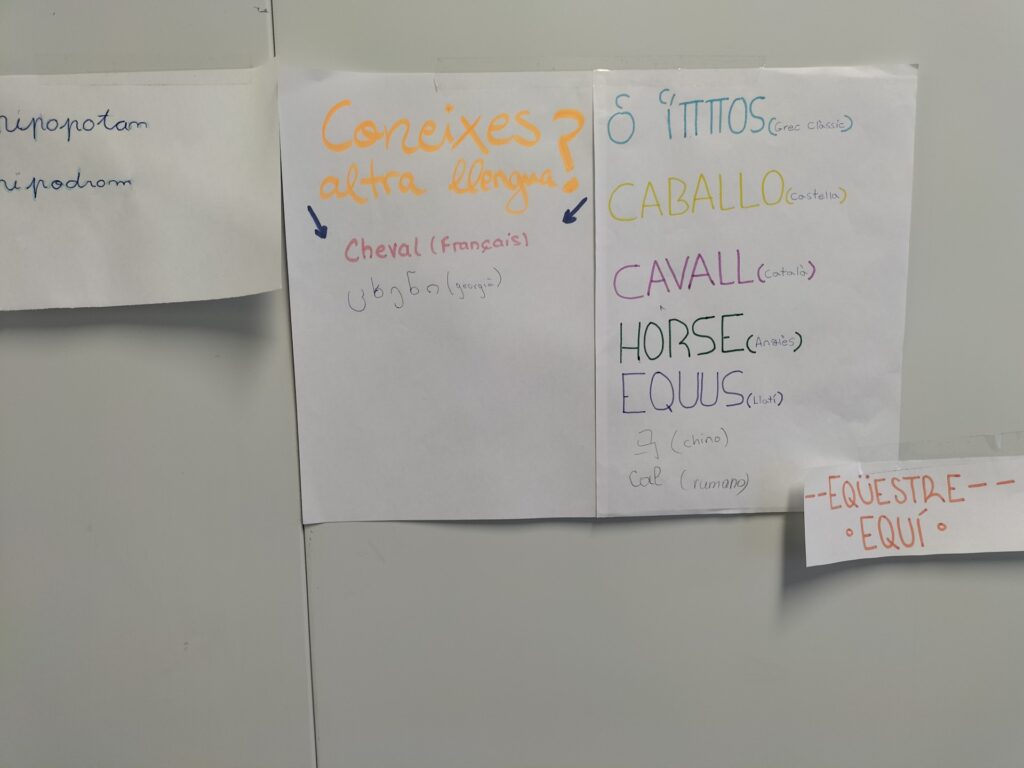 hipopotam
hipodrom
Coneixes
altra llengua?
Cheval (Français)
ცხენი (georgià)
ὁ ἵΠΠΟS (Grec Clàssic)
CABALLO (Castellà)
CAVALL (Català)
HORSE (Anglès)
EQUUS (Llatí)
马 (chino)
cal (rumano)
--EQÜESTRE--
• EQUÍ •